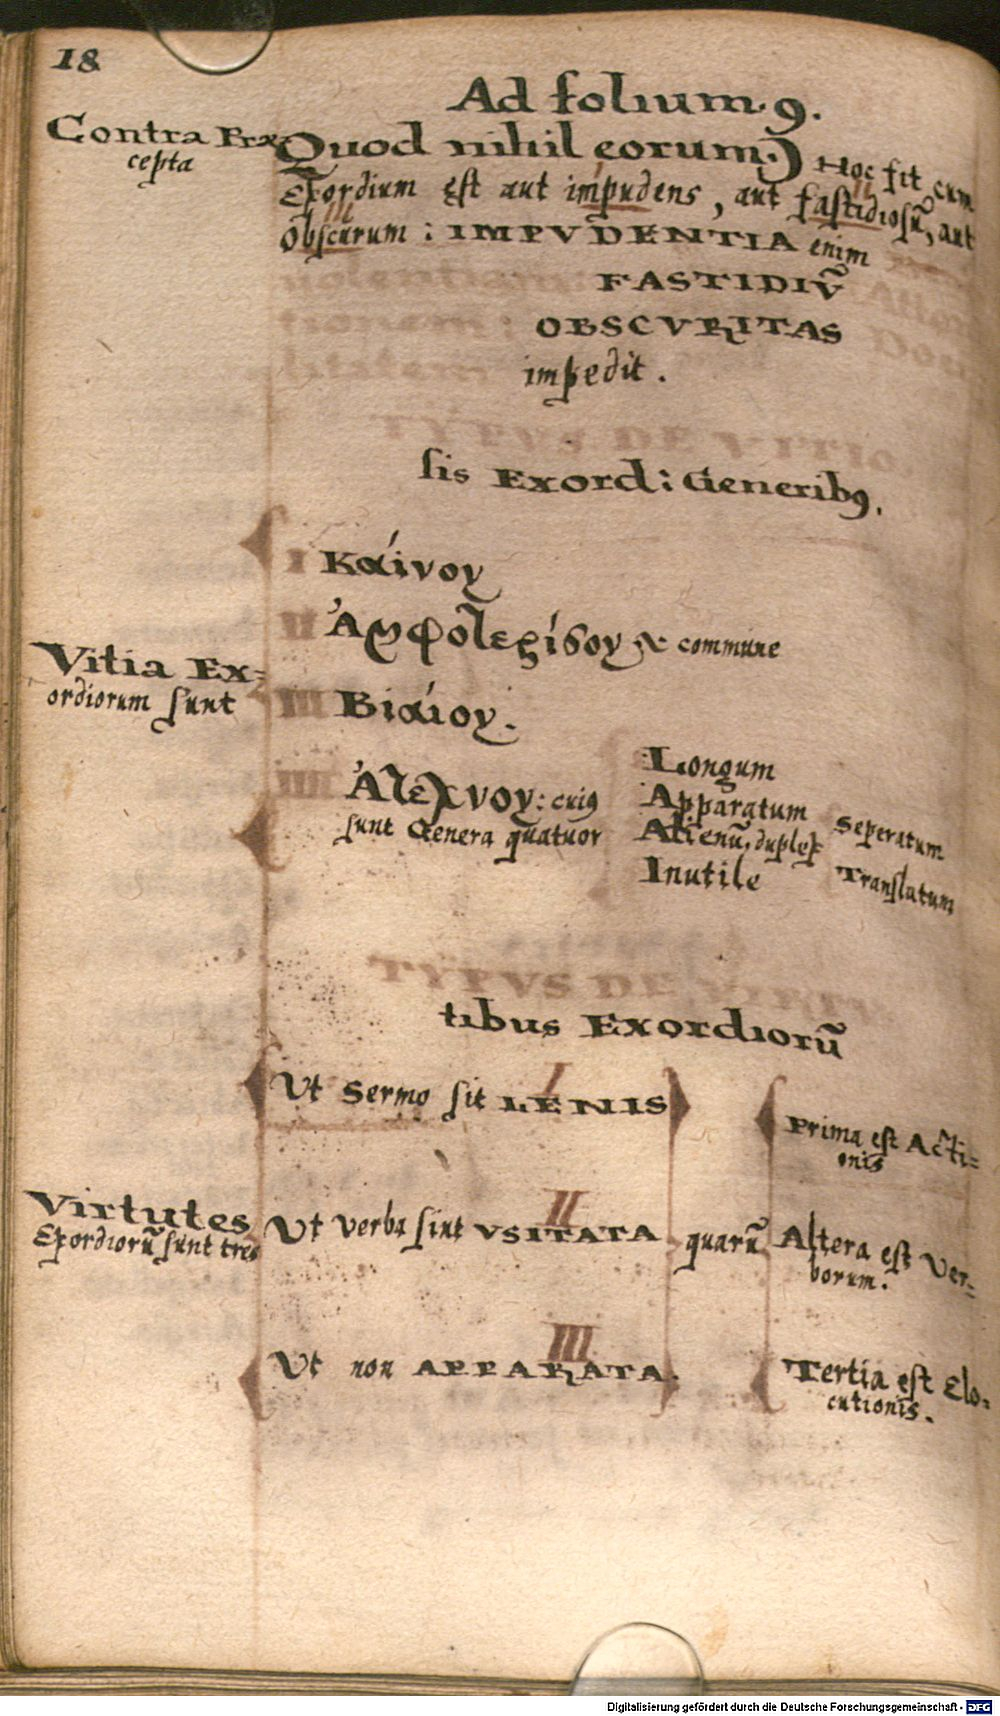 18
Ad folium 9.
Contra Præ
cepta
Quod nihil eorum.) Hoc fit cum
Exordium est aut impudens, aut fastidiosũ, aut
Obscurum: IMPVDENTIA enim
FASTIDIṼ
OBSCVRITAS
impedit.
TYPVS DE VITIO
sis Exord: Generibꝰ.
I Κάινου
II Ἀμφοτερίδου & commune
Vitia Ex=
ordiorum sunt
III Βιάιου.
IIII Ἀτέχνου: cuiꝰ
sunt Genera quatuor
Longum
Apparatum
Alienũ, duplex
Seperatum
Translatum
Inutile
TYPVS DE VIRTV
tibus Exordiorũ
Virtutes
Exordiorũ sunt tres
I
Ut Sermo sit LENIS
II
Ut verba sint VSITATA
III
Ut non APPARATA.
quarũ
Prima est Acti=
onis
Altera est Ver=
borum.
Tertia est Elo=
cutionis.
Digitalisierung gefördert durch die Deutsche Forschungsgemeinschaft - DFG